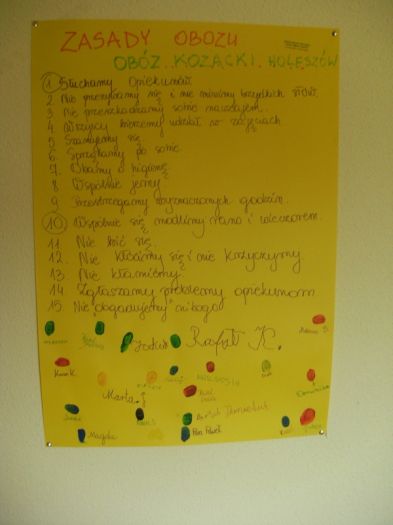 ZASADY OBOZU
OBÓZ KOZACKI HOLESZÓW
1 Słuchamy opiekunów
2. Nie przezywamy się i nie mówimy brzydkich słów.
3 Nie przeszkadzamy sobie nawzajem.
4 Wszyscy bierzemy udział w zajęciach
5 Szanujemy się
6. Sprzątamy po sobie
7. Dbamy o higienę
8 Wspólnie jemy
9. Przestrzegamy wyznaczonych godzin.
10 Wspólnie się modlimy rano i wieczorem.
11 Nie bić się.
12. Nie kłócimy się i nie krzyczymy.
13. Nie kłamiemy
14 Zgłaszamy problemy opiekunom
15. Nie "obgadujemy" nikogo
Rafał K.
Marta
Magda